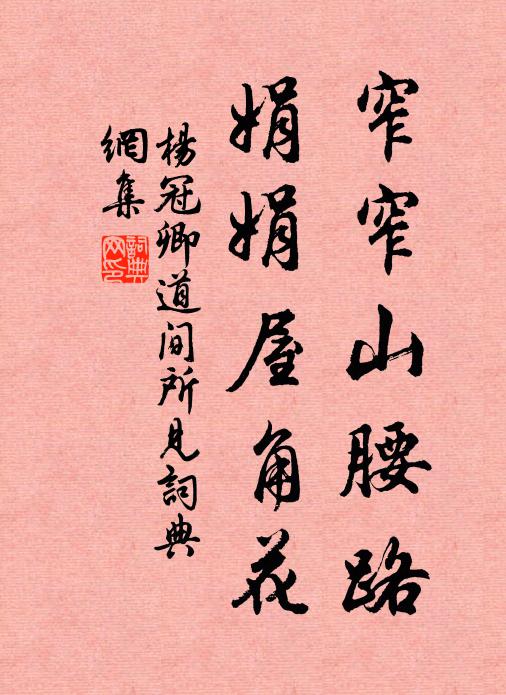 窄窄山腰路
娟娟屋角花
楊冠卿道间所見詞典
網集
詞典
网印